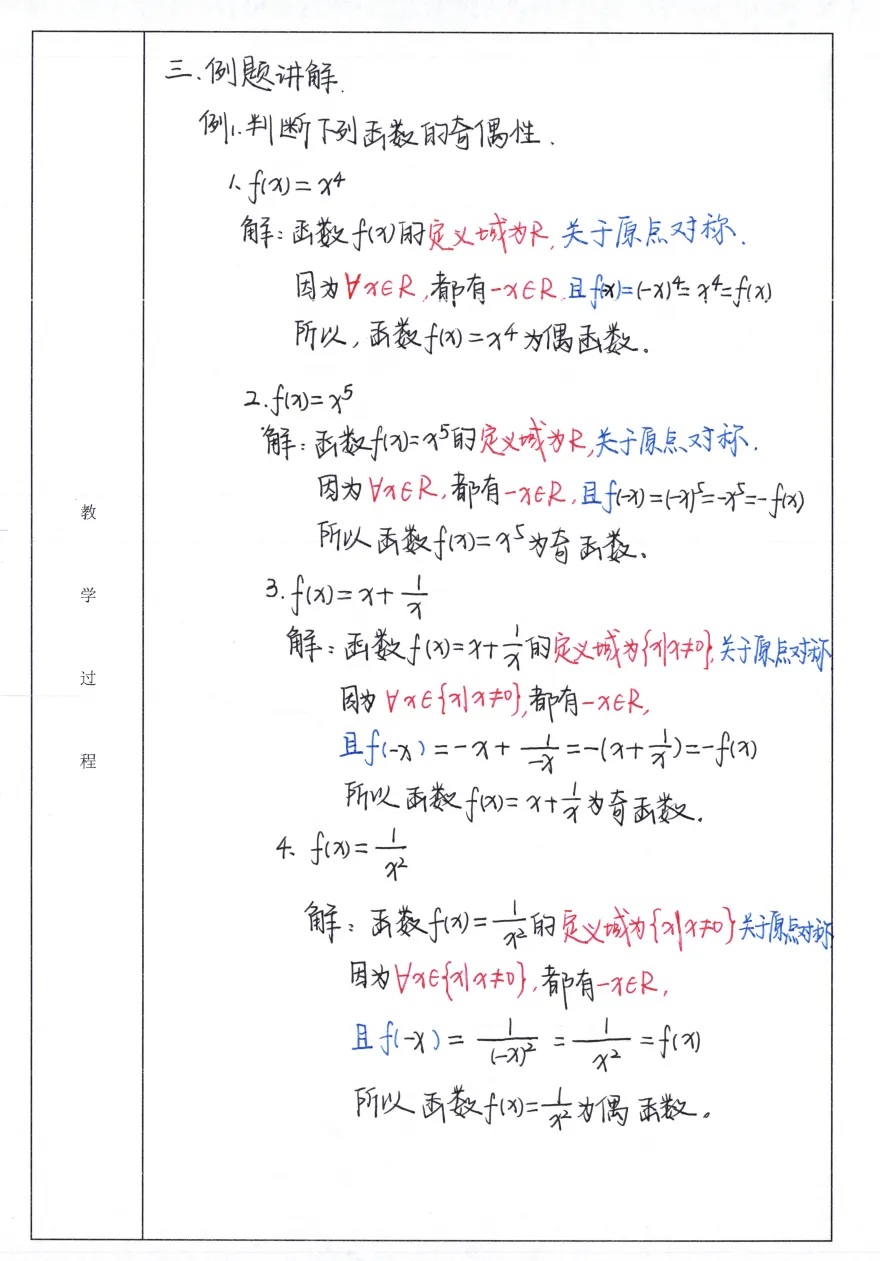 三.例题讲解.
例1.判断下列函数的奇偶性.
1. f(x)=x⁴
解:函数f(x)的定义域为R,关于原点对称.
因为∀x∈R,都有-x∈R,且f(x)=(-x)⁴=x⁴=f(x)
所以,函数f(x)=x⁴为偶函数。
2.f(x)=x⁵
解:函数f(x)=x⁵的定义域为R,关于原点对称.
因为∀x∈R,都有-x∈R,且f(-x)=(-x)⁵=-x⁵=-f(x)
所以函数f(x)=x⁵为奇函数。
3.f(x)=x+1/x
解:函数f(x)=x+1/x的定义域为{x|x≠0},关于原点对称
因为∀x∈{x|x≠0},都有-x∈R,
且f(-x)=-x+1/-x=-(x+1/x)=-f(x)
所以函数f(x)=x+1/x为奇函数.
4、f(x)=1/x²
解:函数f(x)=1/x²的定义域为{x|x≠0}关于原点对称
因为∀x∈{x|x≠0},都有-x∈R,
且f(-x)=1/(-x)²=1/x²=f(x)
所以函数f(x)=1/x²为偶函数。
教
学
过
程